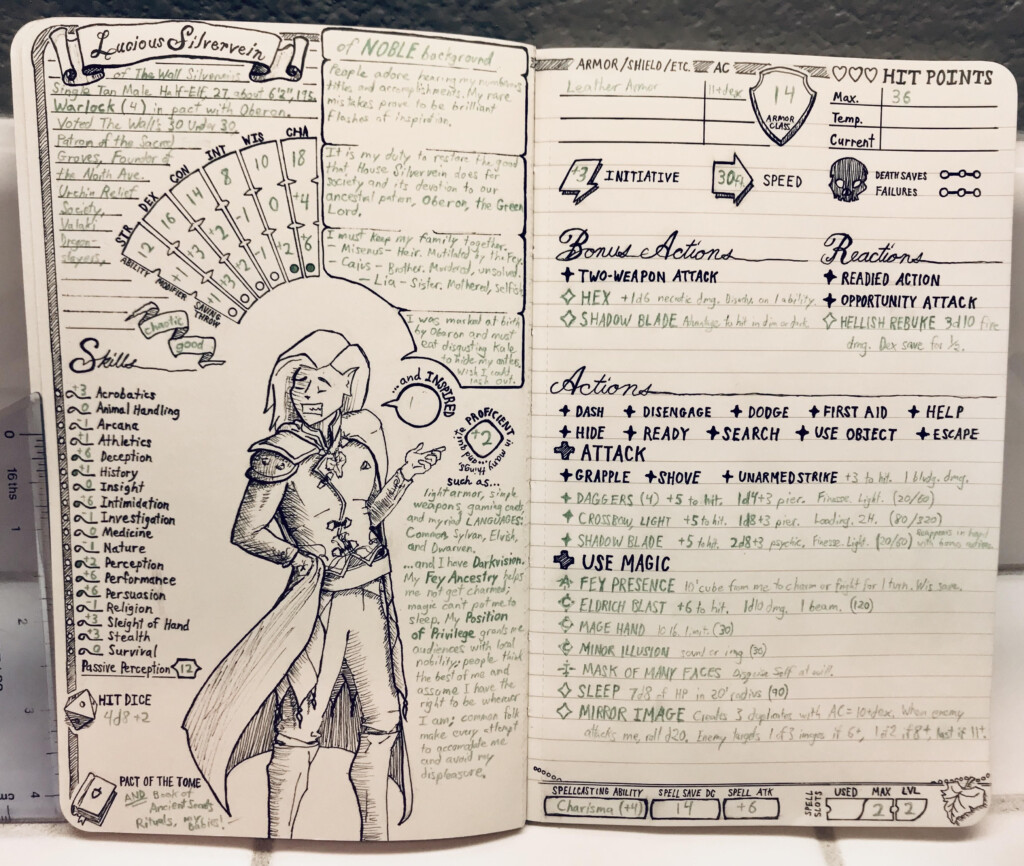 Lucious Silvervein
of The Wall Silverveins
Single Tan Male Half-Elf, 27, about 6'2", 175.
Warlock (4) in pact with Oberon.
Voted The Wall's 30 Under 30
Patron of the Sacred
Groves, Founder of
the North Ave.
Urchin Relief
Society,
Valaki
Dragon-
slayers,
STR DEX CON INT WIS CHA
ABILITY 12 16 14 8 10 18
MODIFIER +1 +3 +2 -1 0 +4
SAVING THROW +1 +3 +2 -1 +2 +6
chaotic
good
Skills
+3 Acrobatics
0 Animal Handling
-1 Arcana
+1 Athletics
+6 Deception
+1 History
0 Insight
+6 Intimidation
-1 Investigation
0 Medicine
-1 Nature
+2 Perception
+6 Performance
+6 Persuasion
-1 Religion
+3 Sleight of Hand
+3 Stealth
0 Survival
Passive Perception 12
HIT DICE
4d8+2
PACT OF THE TOME
AND Book of
Ancient Secrets
Rituals, my babies!
of NOBLE background.
People adore hearing my numerous
titles and accomplishments. My rare
mistakes prove to be brilliant
flashes of inspiration.
It is my duty to restore the good
that House Silvervein does for
society and its devotion to our
ancestral patron, Oberon, the Green
Lord.
I must keep my family together.
- Misenus - Heir. Mutilated by the Fey.
- Caius - Brother. Murdered, unsolved.
- Lia - Sister. Mothered, selfish
I was marked at birth
by Oberon and must
eat disgusting Kale
to hide my antlers.
Wish I could
lash out.
...and INSPIRED
PROFICIENT
+2
in many things... and quite
such as...
light armor, simple
weapons, gaming cards,
and myriad LANGUAGES:
Common, Sylvan, Elvish,
and Dwarven.
...and I have Darkvision.
My Fey Ancestry helps
me not get charmed;
magic can't put me to
sleep. My Position
of Privilege grants me
audiences with local
nobility; people think
the best of me and
assume I have the
right to be wherever
I am; common folk
make every attempt
to accomodate me
and avoid my
displeasure.
ARMOR/SHIELD/ETC. AC
Leather Armor 11+dex
14
ARMOR CLASS
HIT POINTS
Max. 36
Temp.
Current
+3 INITIATIVE
30ft SPEED
DEATH SAVES
FAILURES
Bonus Actions
TWO-WEAPON ATTACK
HEX +1d6 necrotic dmg. Disadv on 1 ability.
SHADOW BLADE Advantage to hit in dim or dark
Reactions
READIED ACTION
OPPORTUNITY ATTACK
HELLISH REBUKE 3d10 fire
dmg. Dex save for ½.
Actions
DASH DISENGAGE DODGE FIRST AID HELP
HIDE READY SEARCH USE OBJECT ESCAPE
ATTACK
GRAPPLE SHOVE UNARMED STRIKE +3 to hit. 1 bldg. dmg.
DAGGERS (4) +5 to hit. 1d4+3 pier. Finesse. Light. (20/60)
CROSSBOW, LIGHT +5 to hit. 1d8+3 pier. Loading. 2H. (80/320)
SHADOW BLADE +5 to hit. 2d8+3 psychic, Finesse. Light. (20/60) Reappears in hand with bonus action
USE MAGIC
FEY PRESENCE 10' cube from me to charm or fright for 1 turn. Wis save.
ELDRICH BLAST +6 to hit. 1d10 dmg. 1 beam. (120)
MAGE HAND 10 lb. limit. (30)
MINOR ILLUSION sound or img (30)
MASK OF MANY FACES Disguise Self at will.
SLEEP 7d8 of HP in 20' radius (90)
MIRROR IMAGE Creates 3 duplicates with AC=10+dex. When enemy
attacks me, roll d20. Enemy targets 1 of 3 images if 6+, 1 of 2 if 8+, last if 11+.
SPELLCASTING ABILITY SPELL SAVE DC SPELL ATK
Charisma (+4) 14 +6
SPELL SLOTS USED MAX LVL
2 2
0
16 ths
1
2
3
4